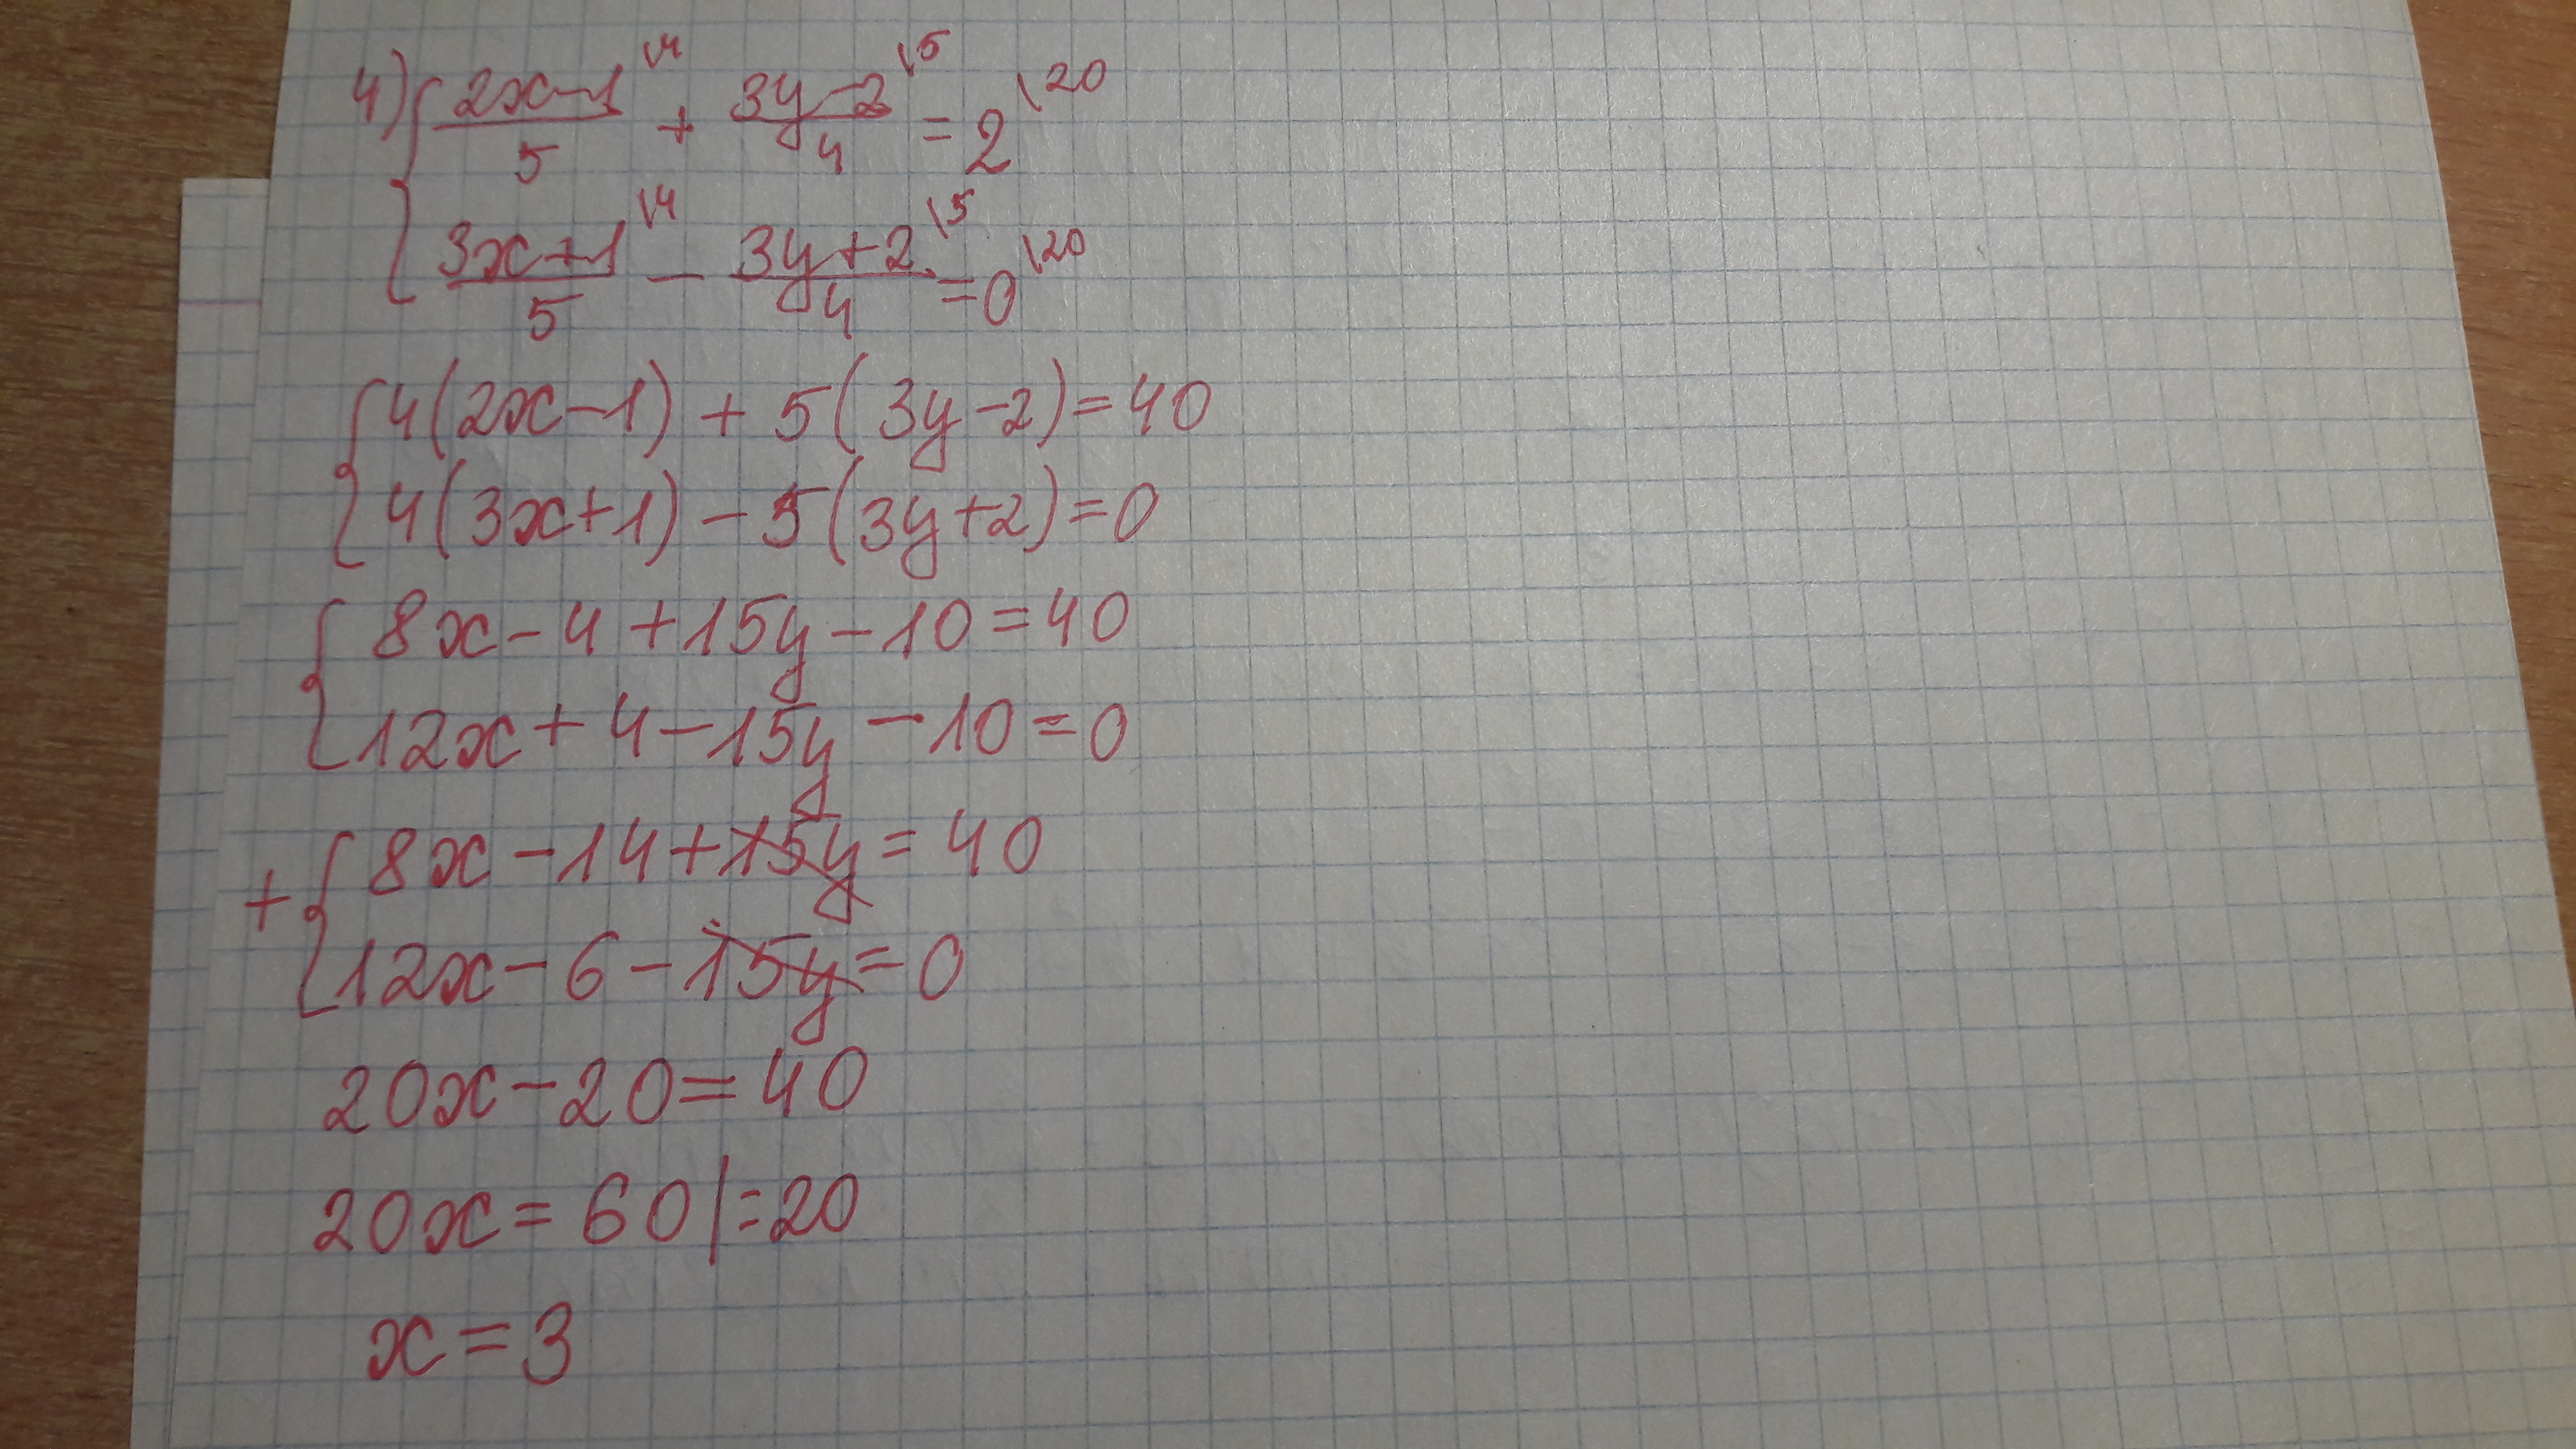 4) { (2x-1)/5 \4 + (3y-2)/4 \5 = 2 \20
(3x+1)/5 \4 - (3y+2)/4 \5 = 0 \20
{ 4(2x-1) + 5(3y-2) = 40
4(3x+1) - 5(3y+2) = 0
{ 8x - 4 + 15y - 10 = 40
12x + 4 - 15y - 10 = 0
+ { 8x - 14 + 15y = 40
12x - 6 - 15y = 0
20x - 20 = 40
20x = 60 | = 20
x = 3